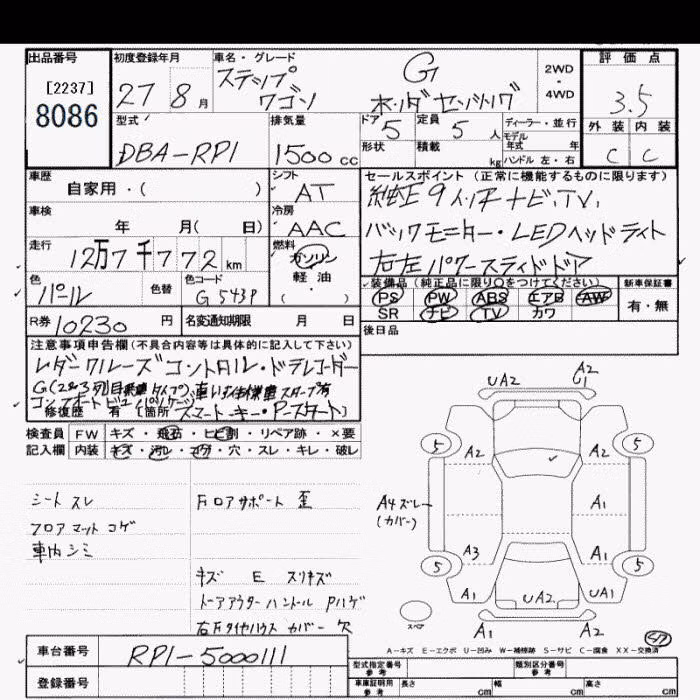 出品番号
[2237]
8086
初度登録年月
27 8 月
車名・グレード
ステップ
ワゴン
G
ホンダセンシング
2WD
・
4WD
評価点
3.5
外装 内装
C C
型式
DBA-RP1
排気量
1500 cc
ドア
5
定員
5 人
形状
積載
kg
ディーラー・並行
モデル
年式 年
ハンドル 左・右
車歴
自家用・( )
シフト
AT
セールスポイント (正常に機能するものに限ります)
純正9インチナビ、TV、
バックモニター・LEDヘッドライト
右左パワースライドドア
車検
年 月( 日)
冷房
AAC
走行
12万7千772 km
燃料
ガソリン
軽・油
・( )
色
パール
色替
色コード
G543P
装備品 (純正品に限り○をつけてください)
PS PW ABS エアB AW
SR ナビ TV カワ
新車保証書
有・無
R券 10230 円
名変通知期限 月 日
後日品
注意事項申告欄 (不具合内容等は具体的に記入して下さい)
レダークルーズコントロル・ドラレコーダー
修復歴 有 (箇所 スマートキー・Pスタート)
検査員 FW キズ・飛石・ヒビ割・リペア跡・×要
記入欄 内装 キズ・汚レ・コゲ・穴・スレ・キレ・破レ
シート スレ
フロアマット コゲ
車内シミ
Fロアサポート 歪
キズ E スリキズ
トーアアウターハントール Pハゲ
右Fタイヤハウス カバー 欠
UA2
A2
G1
5
A2
A2
5
A4ズレ
(カバー)
A1
A3
A1
5
5
A1
UA2
UA1
スペア
A1
A2
A-キズ E-エクボ U-凹み W-補修跡 S-サビ C-腐食 XX-交換済
車台番号 RP1-5000111
登録番号
型式指定番号
参考
類別区分番号
参考
車庫証明用
参考
長さ cm
幅 cm
高さ cm